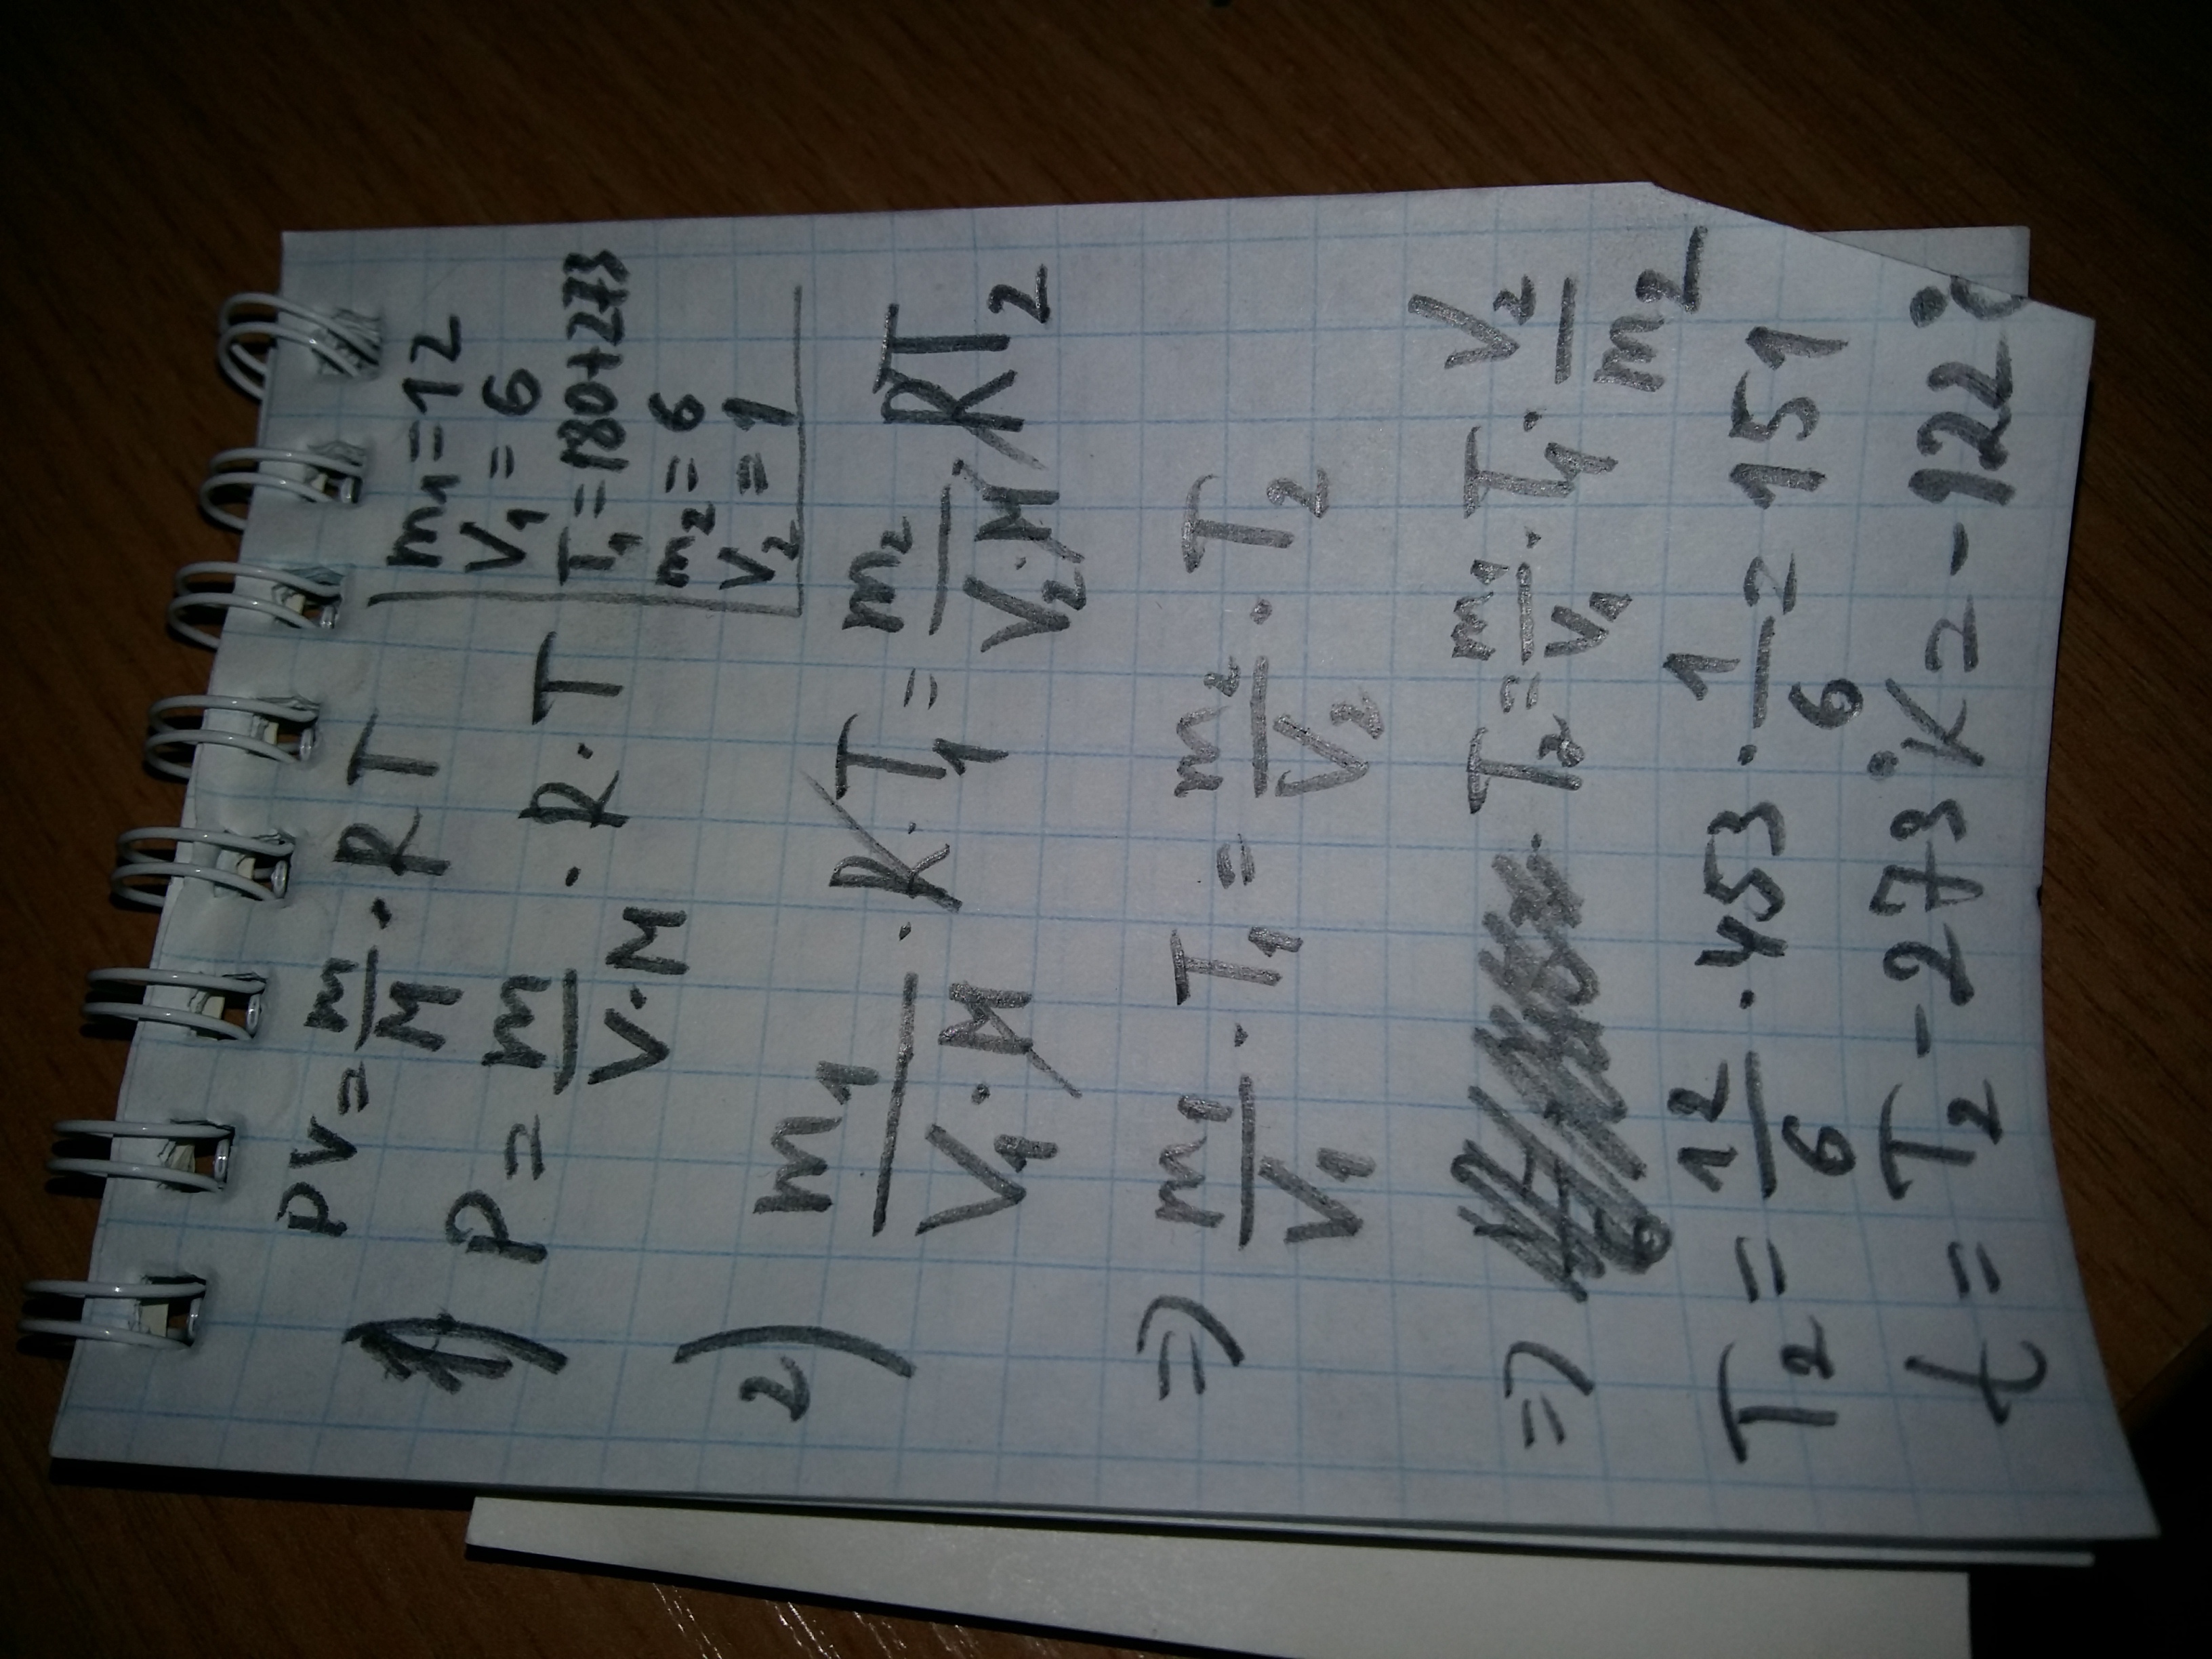 1) PV = m/M · RT
P = m/(V·M) · R·T
m₁=12
V₁=6
T₁=180+273
m₂=6
V₂=1
2) m₁/(V₁·M) · R·T₁ = m₂/(V₂·M) · RT₂
=> m₁/V₁ · T₁ = m₂/V₂ · T₂
=> T₂ = m₁/V₁ · T₁ · V₂/m₂
T₂ = 12/6 · 453 · 1/6 = 151
t = T₂ - 273°K = -122°C